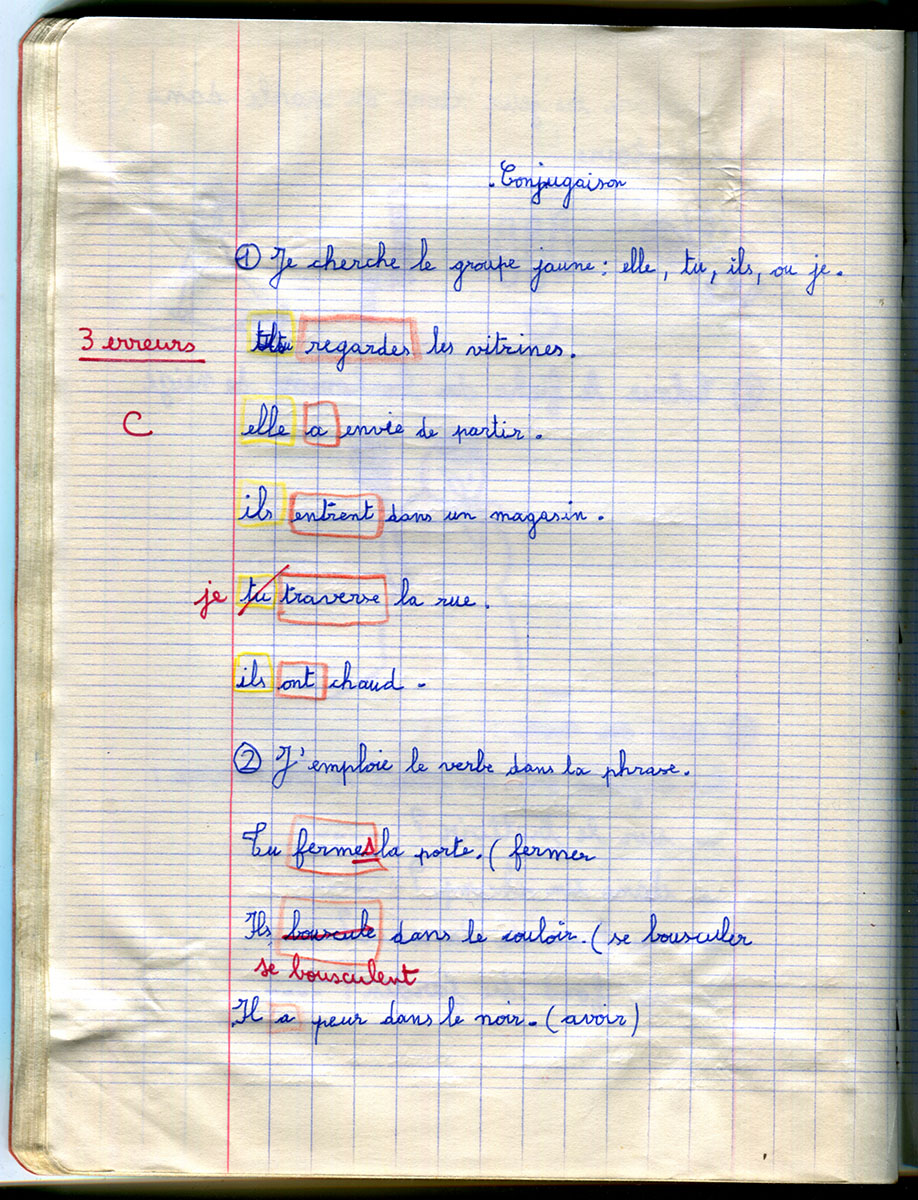 Conjugaison
① Je cherche le groupe jaune : elle, tu, ils, ou je.
3 erreurs tu regardes les vitrines.
C elle a envie de partir.
ils entrent dans un magasin.
je tu traverse la rue.
ils ont chaud.
② J'emploie le verbe dans la phrase.
Tu fermes la porte. (fermer
Ils bouscule dans le couloir. (se bousculer
se bousculent
Il a peur dans le noir. (avoir)